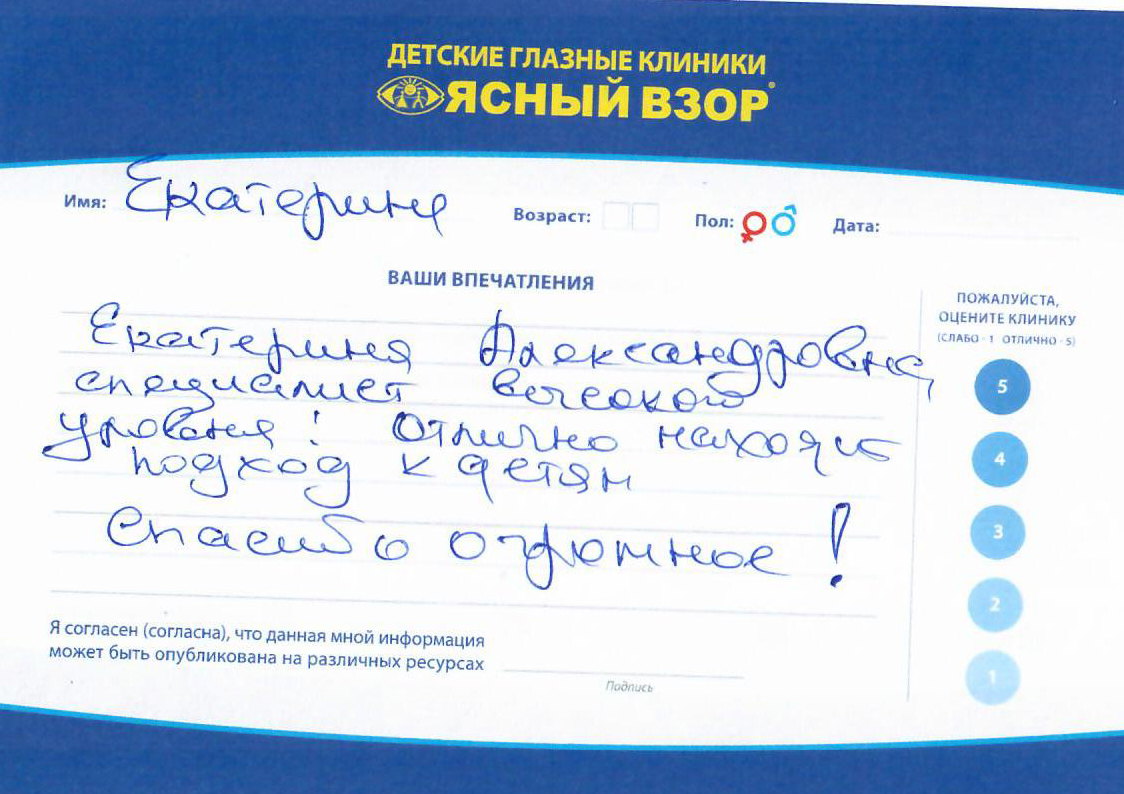 ДЕТСКИЕ ГЛАЗНЫЕ КЛИНИКИ
ЯСНЫЙ ВЗОР
Имя: Екатерина
Возраст: Пол: Дата:
ВАШИ ВПЕЧАТЛЕНИЯ
Екатерина Александровна,
специалист высокого
уровня! Отлично находит
подход к детям
Спасибо огромное!
ПОЖАЛУЙСТА,
ОЦЕНИТЕ КЛИНИКУ
(СЛАБО - 1 ОТЛИЧНО - 5)
5
4
3
2
1
Я согласен (согласна), что данная мной информация
может быть опубликована на различных ресурсах
Подпись